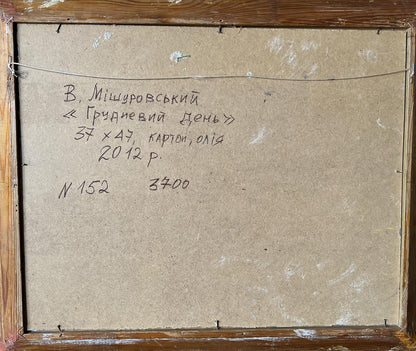 В. Мішуровський
« Грудневий день»
37 × 47, картон, олія
2012 р.
N 152 3700